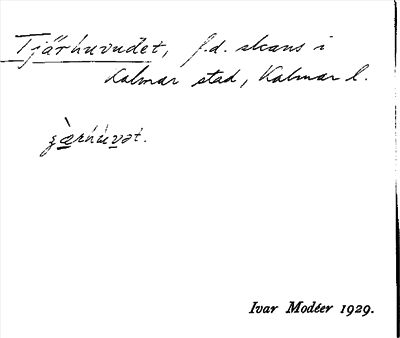 Tjärhuvudet, f.d. skans i
Kalmar stad, Kalmar l.
Ivar Modéer 1929.